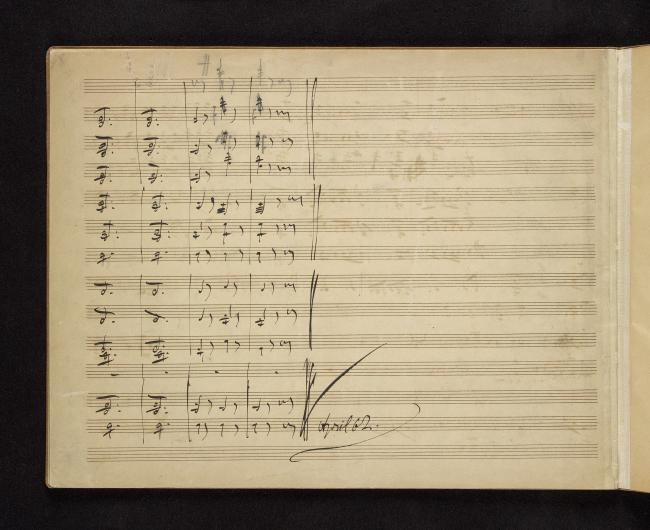 April 62.